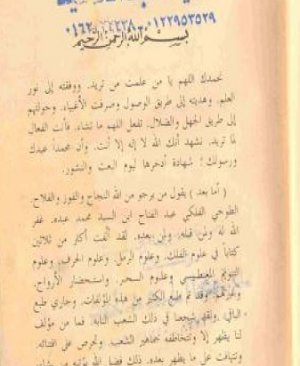 ٠١٢٢٩٥٣٥٢٩
بسم الله الرحمن الرحيم
نحمدك اللهم يا من علمت من تريد. ووفقته إلى نور
العلم. وهديته إلى طريق الوصول وصرفت الأغبياء. وحولتهم
إلى طريق الجهل والضلال. تفعل اللهم ما تشاء. فأنت الفعال
لما تريد. نشهد أنك الله لا إله إلا أنت. وأن محمداً عبدك
ورسولك؛ شهادة أدخرها ليوم البعث والنشور.
( أما بعد ) يقول من يرجو من الله النجاح والفوز والفلاح.
الطوخي الفلكي عبد الفتاح ابن السيد محمد عبده. غفر
الله له ولمن قبله. ولمن بعده. لقد ألفت أكثر من ثلاثين
كتاباً في علوم الفلك. وعلوم الرمل. وعلوم الحرف. وعلوم
التنويم المغنطيسي وعلوم السحر. واستحضار الأرواح.
وغيرهم. وقد تم طبع الكثير من هذه المؤلفات. وجاري طبع
الباقي. ولقد شجعنا في ذلك الشعب النابه. فما من مؤلف
لنا يظهر إلا وتتخاطفه جماهير الشعب وتحرص على اقتنائه.
وتتهافت على ما يظهر بعده. ذلك فضل الله يؤتيه من يشاء.